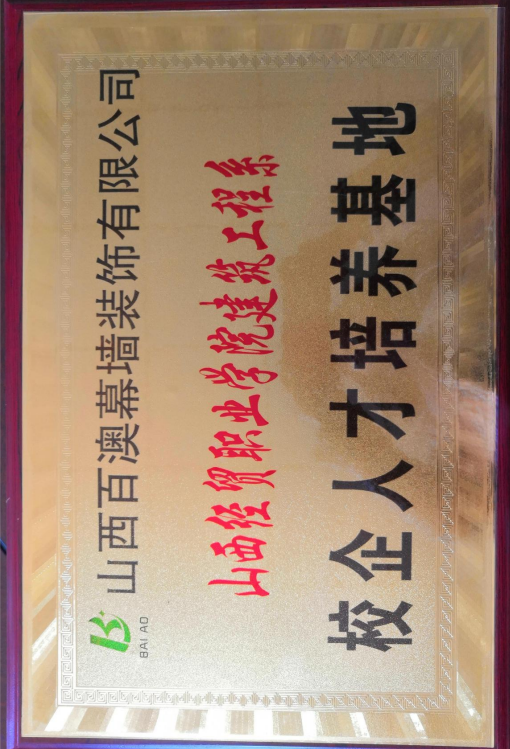 BAI AO
山西百澳幕墙装饰有限公司
山西经贸职业学院建筑工程系
校企人才培养基地